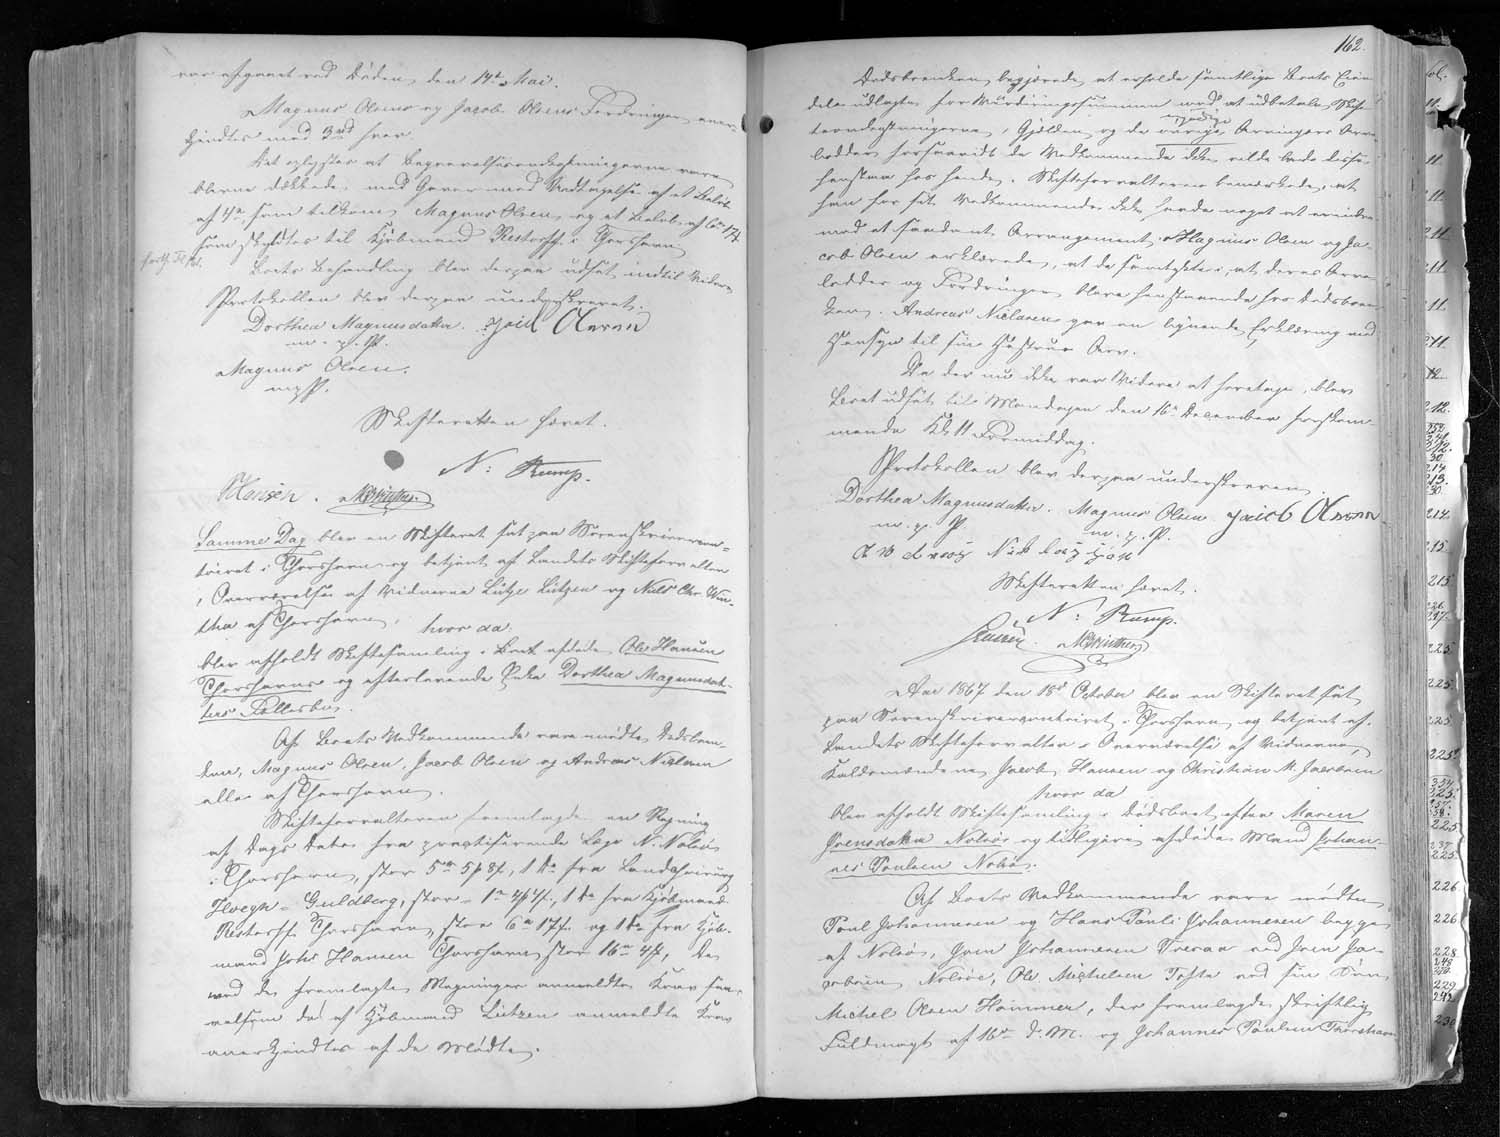 var afgaaet ved Døden den 14de Mai.
Magnus Olsens og Jacob Olsens Fordringer aner-
kjendtes med 3rd hver.
Det oplystes at Begravelsesomkostningerne vare
blevne dækkede med Gaver med Undtagelse af et Beløb
af 4rd, som tilkom Magnus Olsen, og et Beløb af 6rd 17s
som skyldtes til Kjøbmand Restorff i Thorshavn
Boets Behandling blev derpaa udsat indtil Videre
Protokollen blev derpaa underskrevet.
Dorthea Magnusdatter. Jacob Olesen
m. p. P.
Magnus Olsen.
m p P.
Skifteretten hævet.
N: Rump.
Hansen. NCWinther.
Samme Dag blev en Skifteret sat paa Sorenskrivercon-
toiret i Thorshavn og betjent af Landets Skifteforvalter
i Overværelse af Vidnerne Lütje Lützen og Niels Chr. Win-
ther af Thorshavn,
hvor da
blev afholdt Skiftesamling i Boet afdøde Ole Hansen
Thorshavn og efterlevende Enke Dorthea Magnusdat-
ters Fællesbo.
Af Boets Vedkommende vare mødte Dødsboen-
ken, Magnus Olsen, Jacob Olsen og Andreas Niclasen
alle af Thorshavn.
Skifteforvalteren fremlagde en Regning
af Dags Dato fra practiserende Læge N. Nolsøe
i Thorshavn, stor 5rd 5 8s, 1 do fra Landchirurg
Hoegh-Guldberg, stor 1rd 4 4s, 1 do fra Kjøbmand
Restorff Thorshavn stor 6rd 17s og 1 do fra Kjøb-
mand Johs Hansen Thorshavn stor 16rd 4s, De
ved de fremlagte Regninger anmeldte Krav saa-
velsom det af Kjøbmand Lützen anmeldte Krav
anerkjendtes af de Mødte.
162.
Dødsboenken begjærede at erholde samtlige Boets Eien-
dele udlagte for Vurderingssummen mod at udbetale Skif-
teromkostningerne, Gjælden og de
myndige
øvrige Arvingers Arve-
lodder forsaavidt de Vedkommende ikke vilde lade disse
henstaa hos hende. Skifteforvalteren bemærkede, at
han for sit Vedkommende ikke havde noget at erindre
mod et saadant Arrangement. Magnus Olsen og Ja-
cob Olsen erklærede, at de samtykte i, at deres Arve-
lodder og Fordringer bleve henstaaende hos Dødsboen-
ken. Andreas Niclasen gav en lignende Erklæring med
Hensyn til sin Hustrus Arv.
Da der nu ikke var Videre at foretage, blev
Boet udsat til Mandagen den 16de December førstkom-
mende Kl. 11 Formiddag.
Protokollen blev derpaa underskreven.
Dorthea Magnusdatter. Magnus Olsen Jacob Olesen
m. p. P. m. p. P.
Skifteretten hævet.
N: Rump.
NCWinther
Aar 1867 den 18de October blev en Skifteret sat
paa Sorenskrivercontoiret i Thorshavn og betjent af
Landets Skifteforvalter i Overværelse af Vidnerne,
Kaldsmændene Jacob Hansen og Christian M. Jacobsen
hvor da
blev afholdt Skiftesamling i Dødsboet efter Maren
Joensdatter Nolsø og tidligere afdøde Mand Johan-
nes Poulsen Nolsø.
Af Boets Vedkommende vare mødte
Poul Johannesen og Hans Pauli Johannesen begge
af Nolsø, Joen Johannesen Trøraa ved Joen Ja-
cobsen Nolsøe, Ole Michelsen Tofte ved sin Søn
Michel Olsen Hammer, der fremlagde skriftlig
Fuldmagt af 16de d. M. og Johannes Poulsen Thorshavn